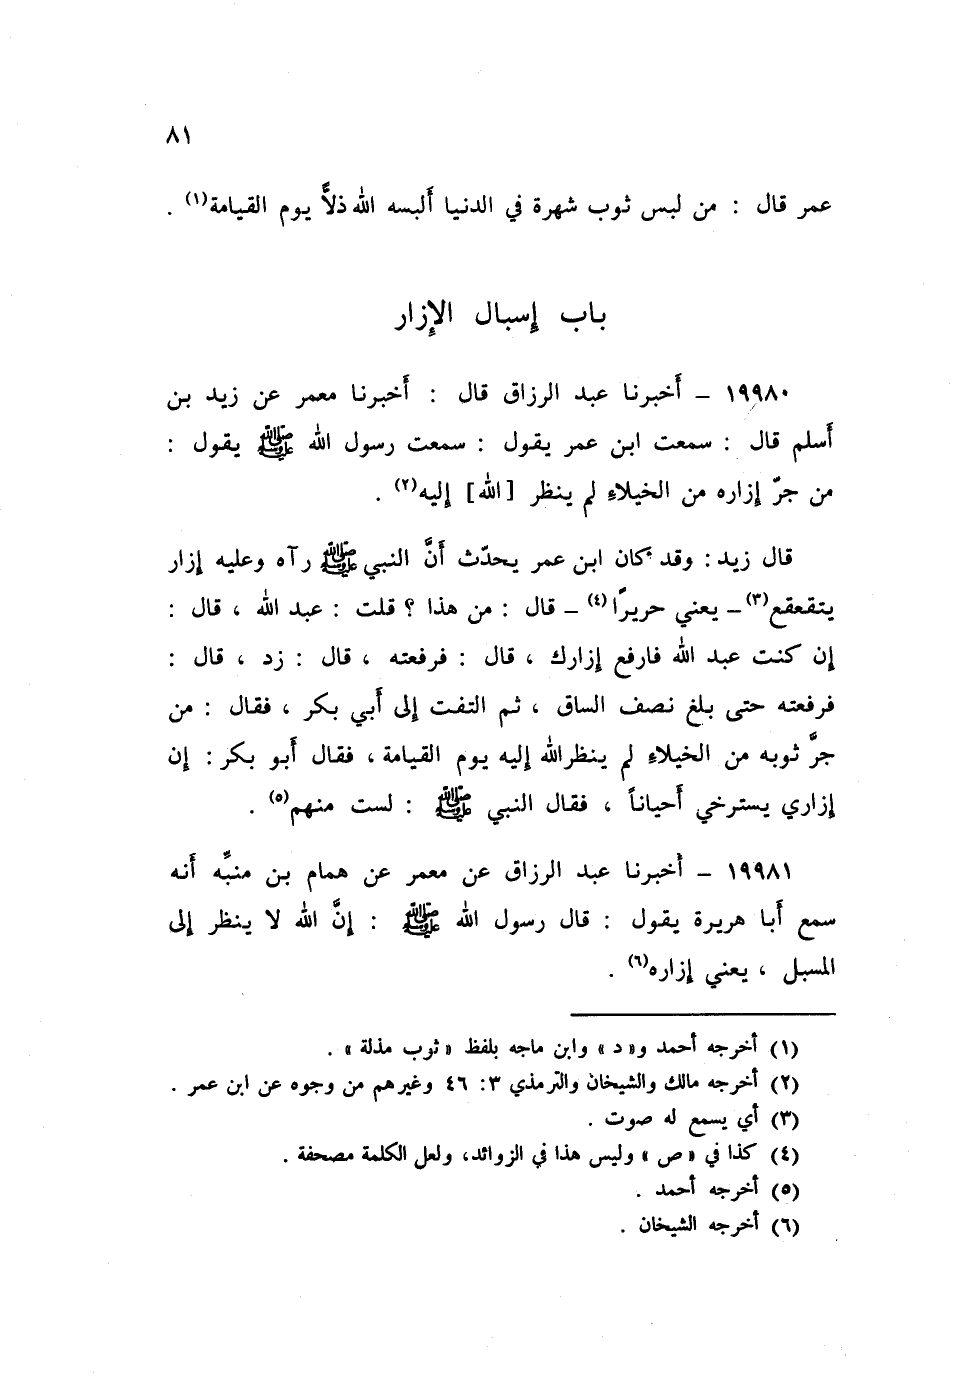 ٨١
عمر قال : من لبس ثوب شهرة في الدنيا أَلبسه الله ذلاًّ يوم القيامة(١) .
باب إسبال الإزار
١٩٩٨٠ – أَخبرنا عبد الرزاق قال : أَخبرنا معمر عن زيد بن
أَسلم قال : سمعت ابن عمر يقول : سمعت رسول الله ﷺ يقول :
من جرّ إزاره من الخيلاءِ لم ينظر [الله] إليه(٢) .
قال زيد : وقد كان ابن عمر يحدّث أَنَّ النبي ﷺ رآه وعليه إزار
يتقعقع(٣) – يعني حريرًا(٤) – قال : من هذا ؟ قلت : عبد الله ، قال :
إن كنت عبد الله فارفع إزارك ، قال : فرفعته ، قال : زد ، قال :
فرفعته حتى بلغ نصف الساق ، ثم التفت إلى أَبي بكر ، فقال : من
جرَّ ثوبه من الخيلاءِ لم ينظر الله إليه يوم القيامة ، فقال أَبو بكر : إن
إزاري يسترخي أَحياناً ، فقال النبي ﷺ : لست منهم(٥) .
١٩٩٨١ – أَخبرنا عبد الرزاق عن معمر عن همام بن منبِّه أَنه
سمع أَبا هريرة يقول : قال رسول الله ﷺ : إنَّ الله لا ينظر إلى
المسبل ، يعني إزاره(٦) .
(١) أخرجه أحمد و«د» وابن ماجه بلفظ «ثوب مذلة» .
(٢) أخرجه مالك والشيخان والترمذي ٣ : ٤٦ وغيرهم من وجوه عن ابن عمر .
(٣) أي يسمع له صوت .
(٤) كذا في «ص» وليس هذا في الزوائد، ولعل الكلمة مصحفة .
(٥) أخرجه أحمد .
(٦) أخرجه الشيخان .